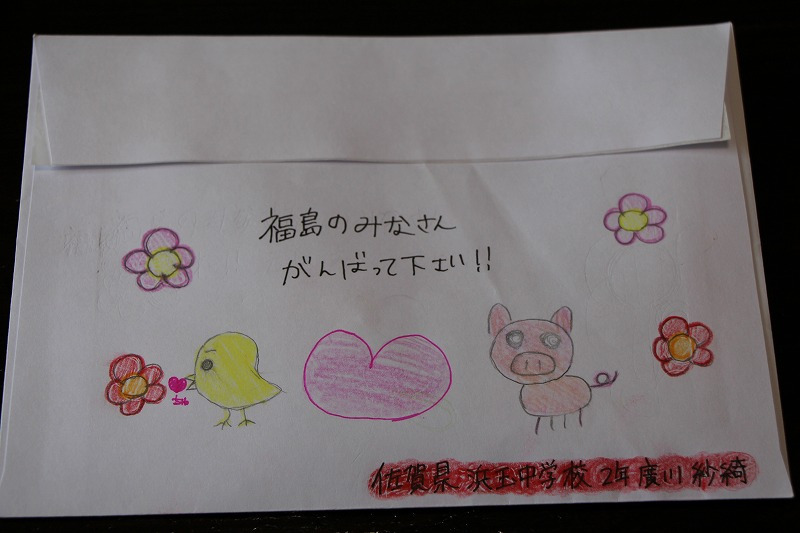 福島のみなさん
がんばって下さい!!
佐賀県 浜玉中学校 2年 廣川 紗綺